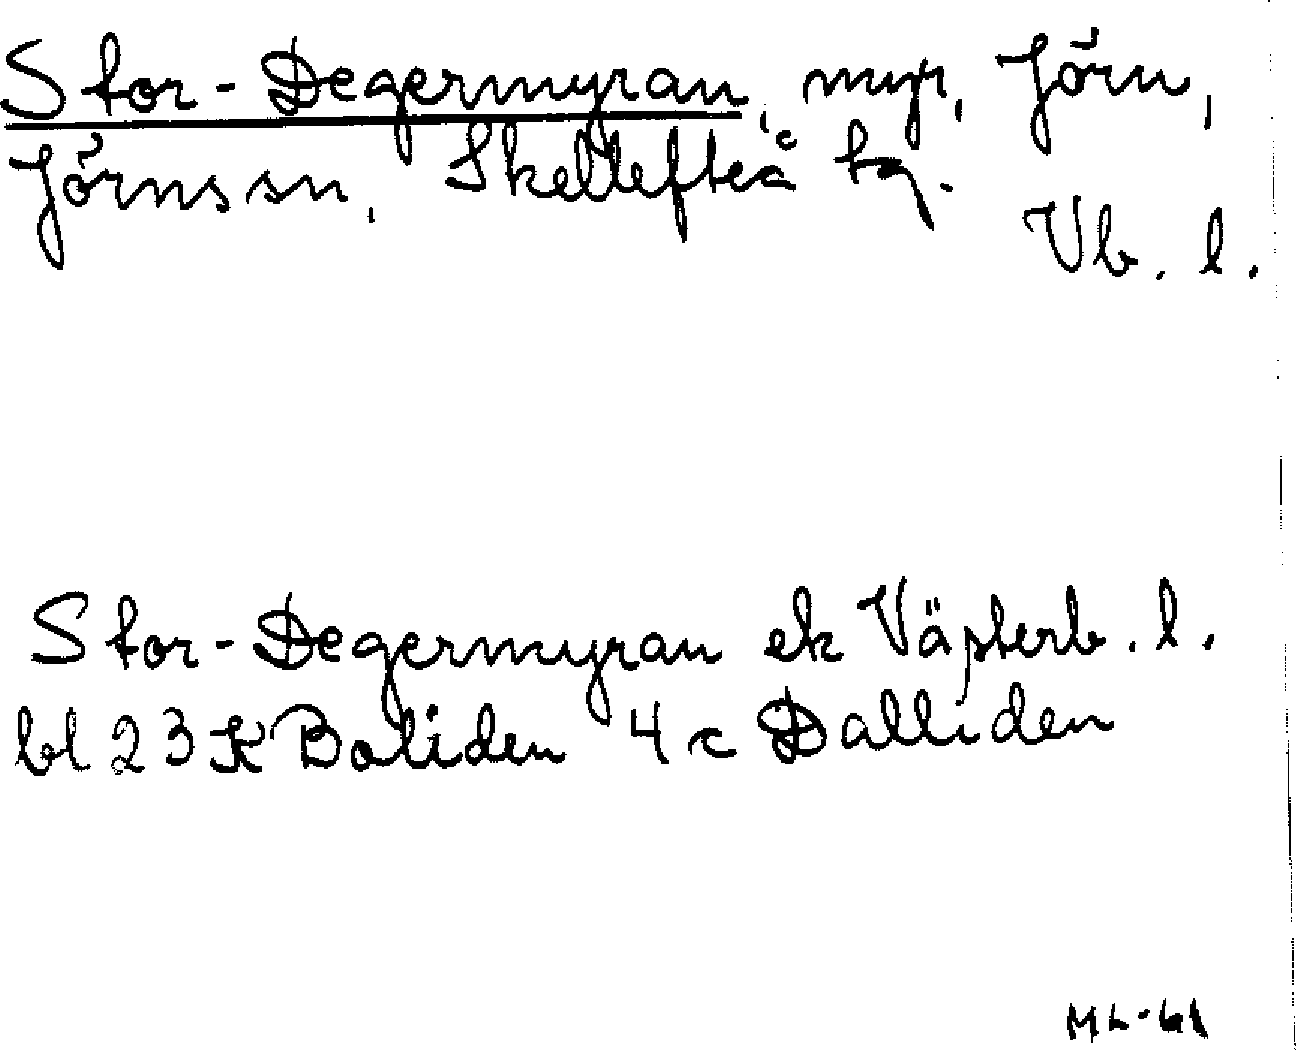 Stor-Degermyran, myr, Jörn,
Jörns sn, Skellefteå tg.
Vb. l.
Stor-Degermyran ek Västerb. l.
bl 23 K Boliden 4 c Dalliden